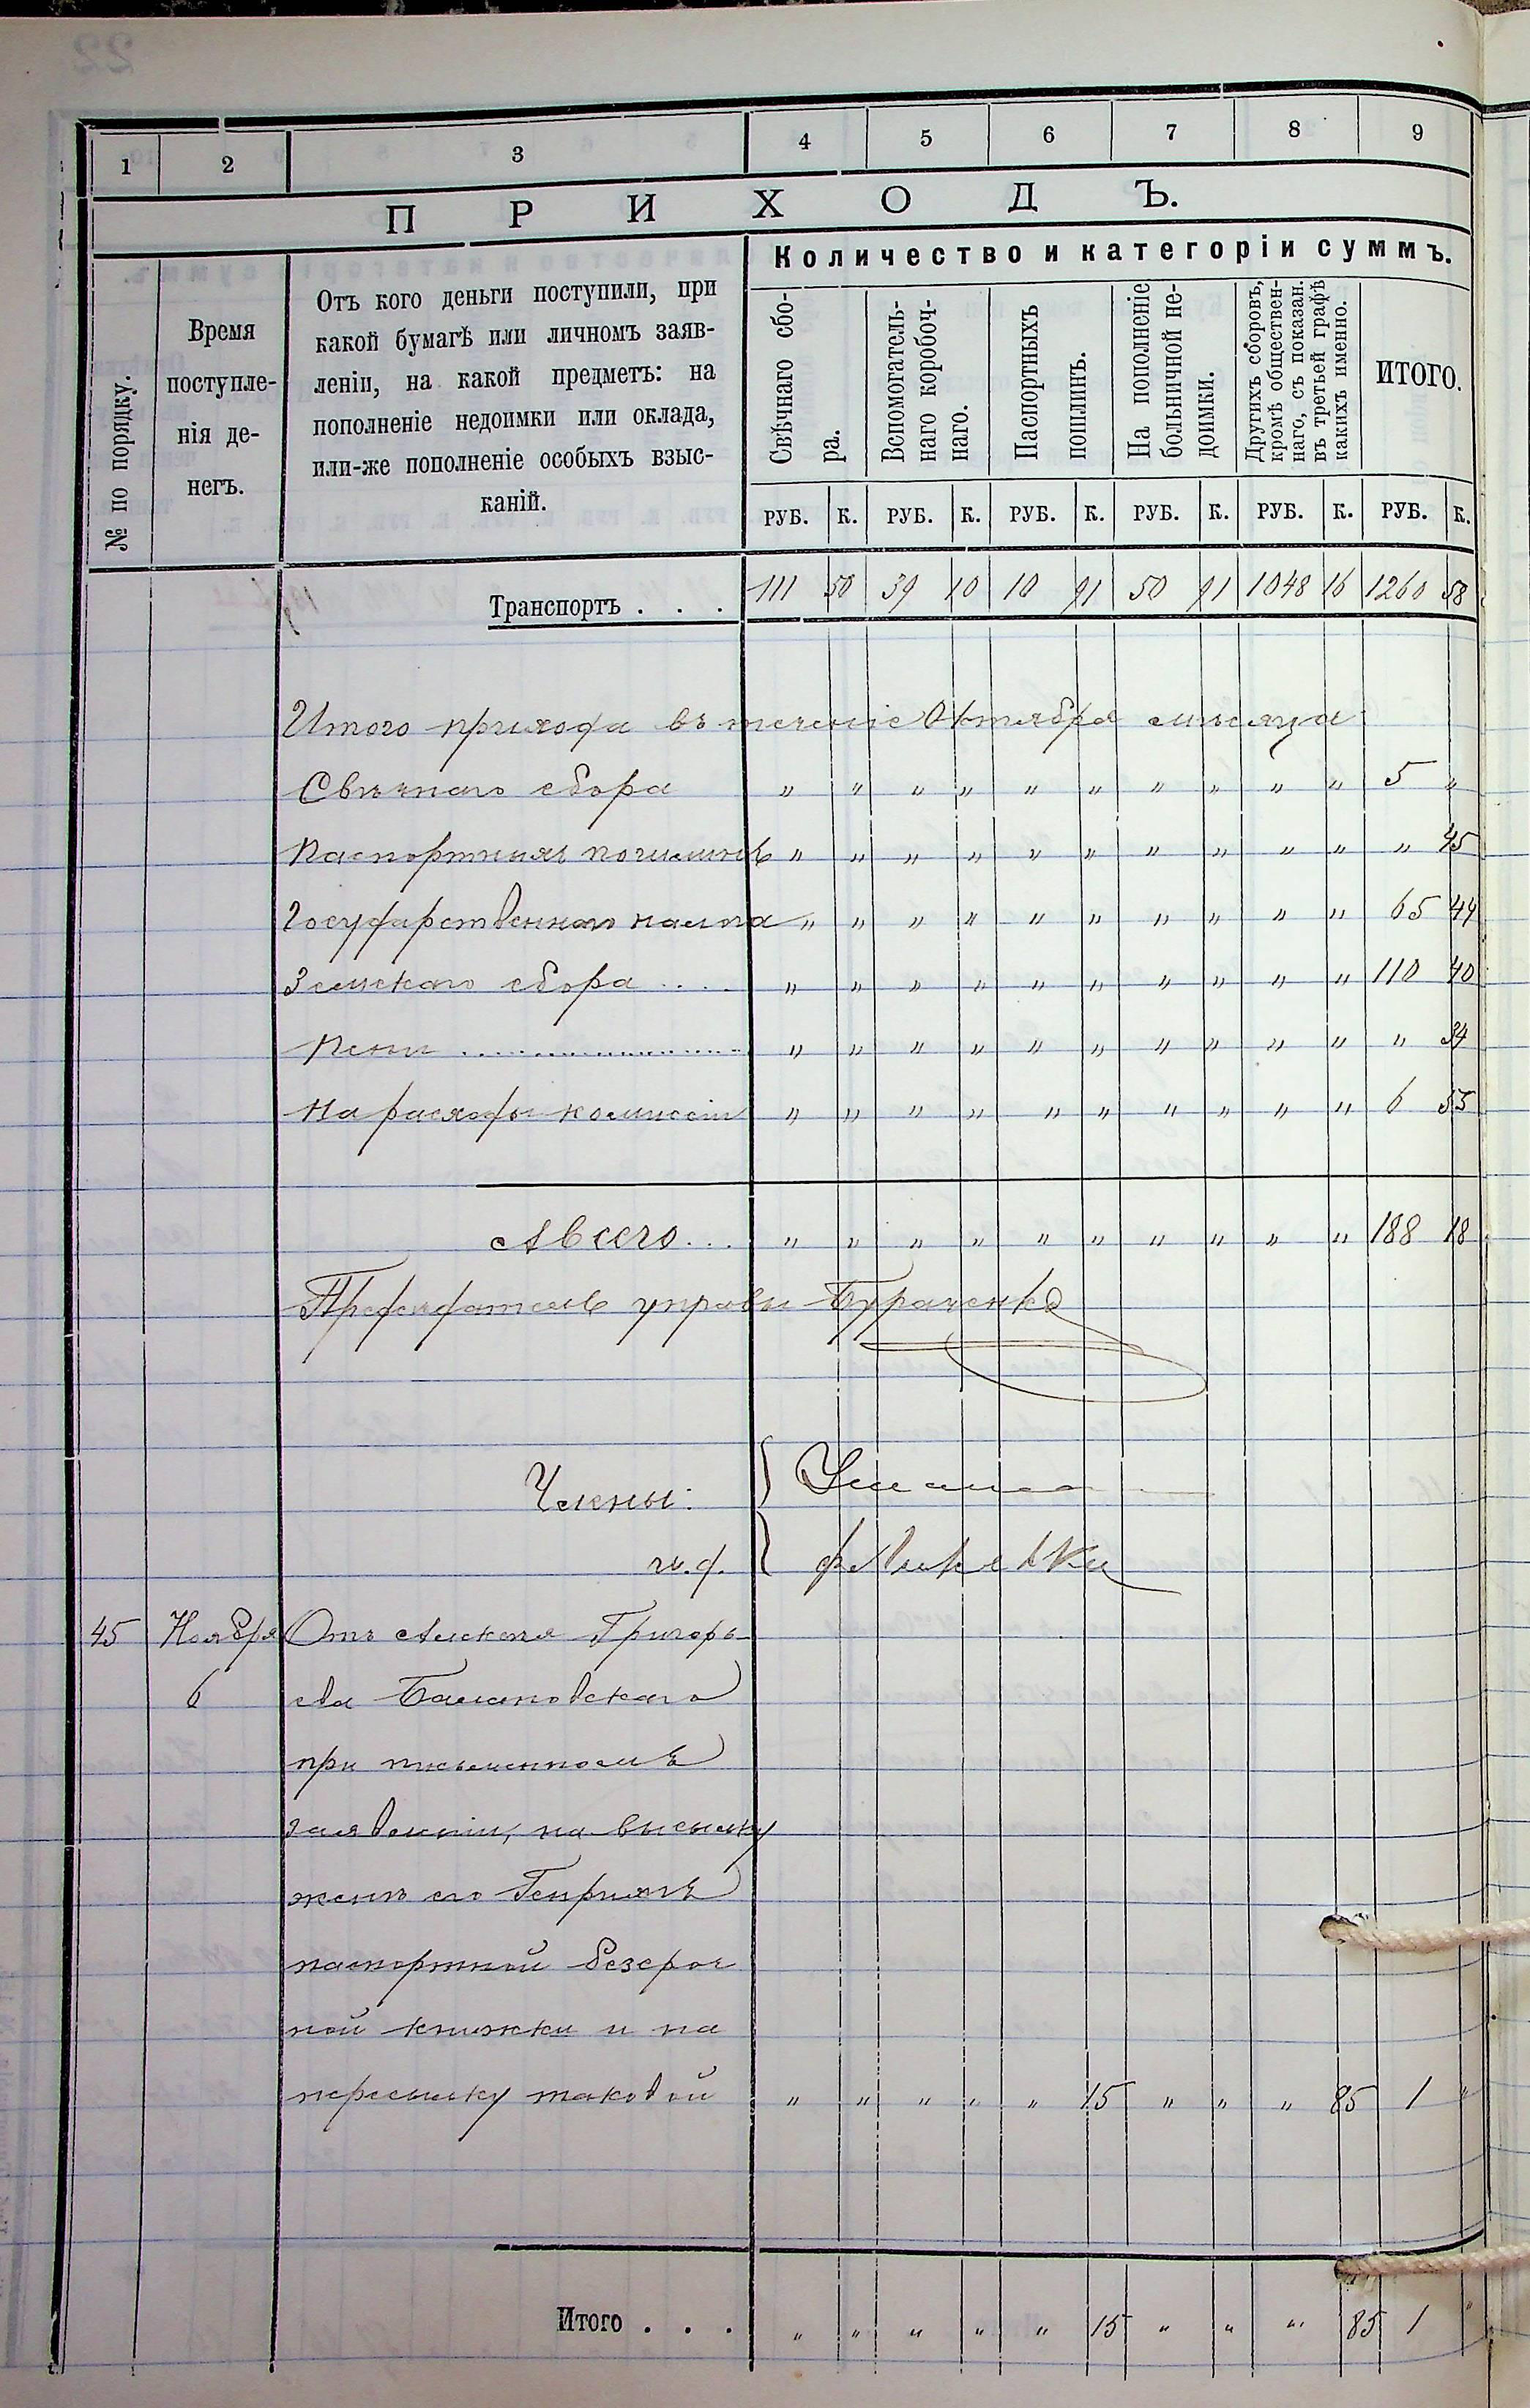 22
1 2 3 4 5 6 7 8 9
ПРИХОДЪ.
№ по порядку.
Время
поступле-
нія де-
негъ.
Отъ кого деньги поступили, при
какой бумагѣ или личномъ заяв-
леніи, на какой предметъ: на
пополненіе недоимки или оклада,
или-же пополненіе особыхъ взыс-
каній.
Количество и категоріи суммъ.
Свѣчнаго сбо-
ра.
Вспомогатель-
наго коробоч-
наго.
Паспортныхъ
пошлинъ.
На пополненіе
больничной не-
доимки.
Другихъ сборовъ,
кромѣ обществен-
наго, съ показан.
въ третьей графѣ
какихъ именно.
ИТОГО.
РУБ. К. РУБ. К. РУБ. К. РУБ. К. РУБ. К. РУБ. К.
Транспортъ . . . 111 50 39 10 10 91 50 91 1048 16 1260 58
Итого прихода въ теченіе Октября мѣсяца
Свѣчнаго сбора " " " " " " " " " " 5 "
Паспортныхъ пошлинъ " " " " " " " " " " " 45
Государственнаго налога " " " " " " " " " " 65 44
Земскаго сбора .... " " " " " " " " " " 110 40
Пени .................. " " " " " " " " " " " 34
На расходы коммиссіи " " " " " " " " " " 6 55
А всего... " " " " " " " " " " 188 18
Предсѣдатель управы Бураченко
Члены:
и.д.
45 Ноября Отъ Алексѣя Григорь-
6 ева Балановскаго
при письменномъ
заявленіи, на высылку
женѣ его
паспортной безсроч
ной книжки и на
пересылку таковой " " " " " 15 " " " 85 1 "
Итого . . . " " " " " 15 " " " 85 1 "